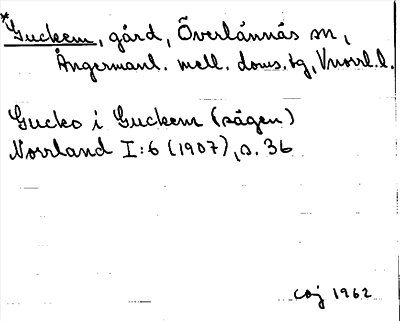 *Guckem, gård, Överlännäs sn,
Ångermanl. mell. doms. tg, Vnorrl. l.
Gucko i Guckem (sägen)
Norrland I:6 (1907), s. 36
CGJ 1962